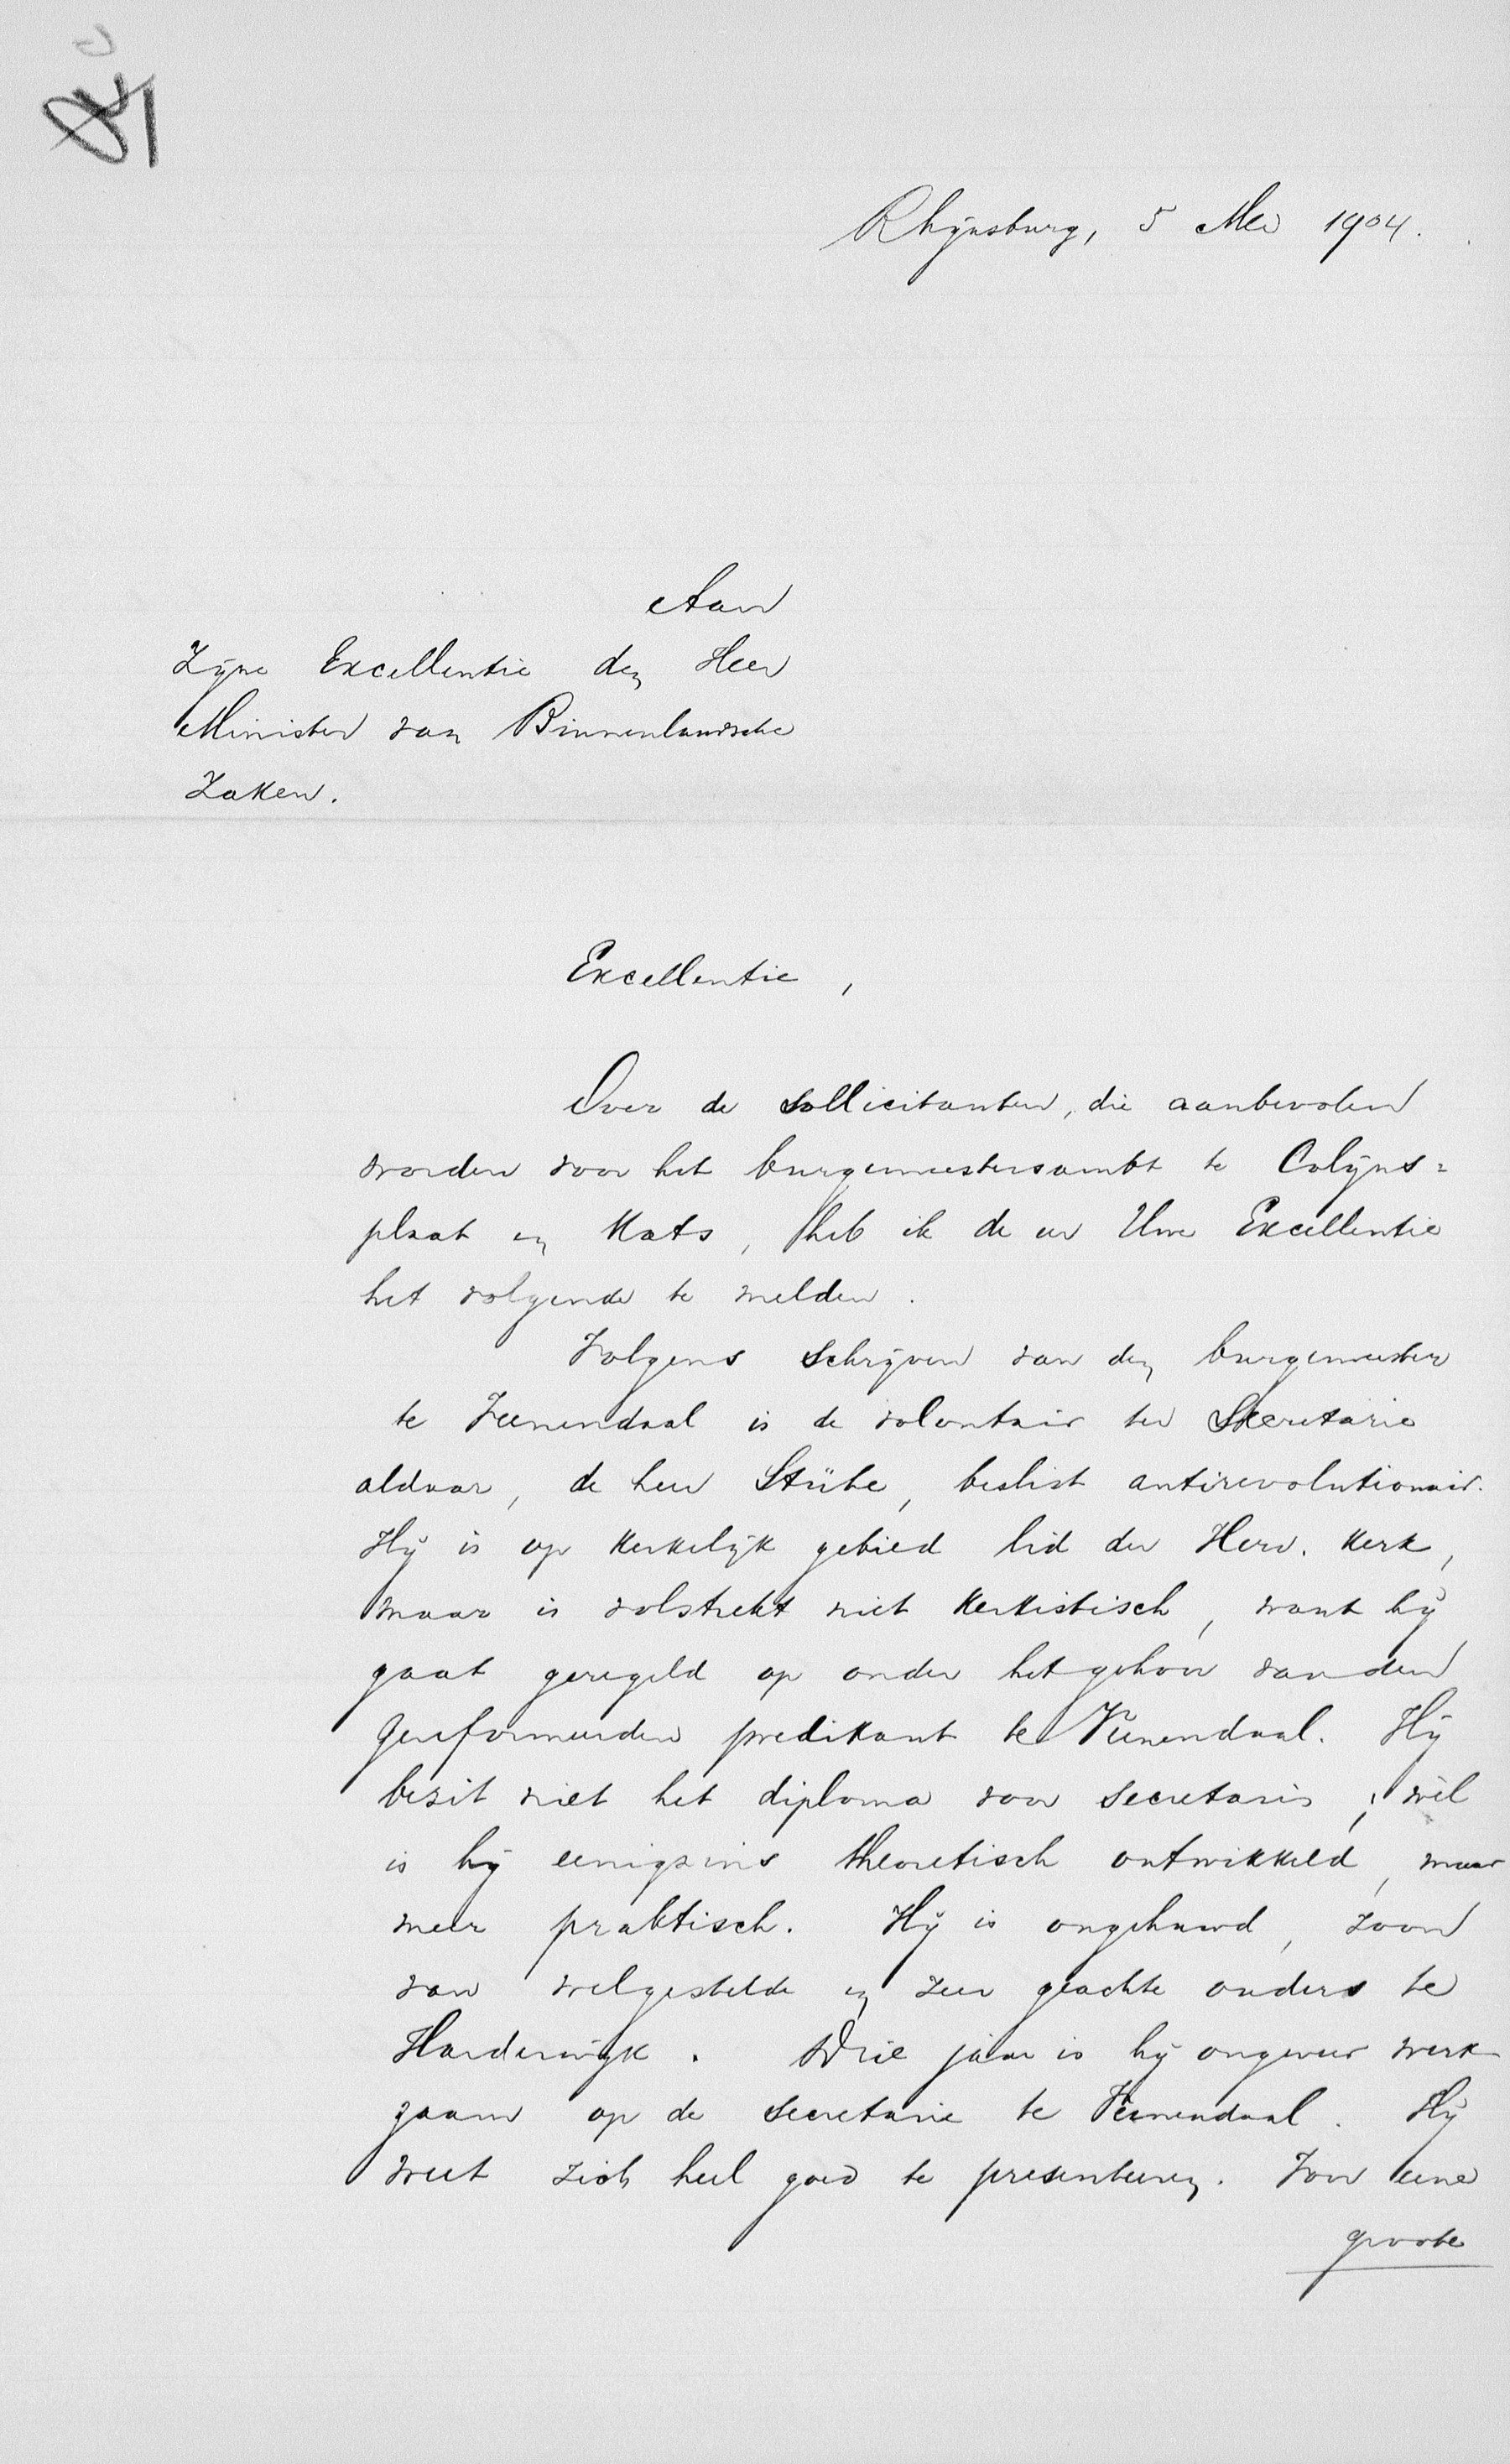 Rhijnsburg, 5 Mei 1904.
Aan
Zijne Excellentie den Heer
Minister van Binnenlandsche
Zaken.
Excellentie,
Over de sollicitanten, die aanbevolen
worden voor het burgemeestersambt te Colijns=
plaat en Kats, heb ik de eer Uwe Excellentie
het volgende te melden.
Volgens schrijven van den burgemeester
te Veenendaal is de volontair ter Secretarie
aldaar, de heer Stübe, beslist antirevolutionair.
Hij is op kerkelijk gebied lid der Herv. kerk,
maar is volstrekt niet kerkistisch, want hij
gaat geregeld op onder het gehoor van den
Gereformeerden predikant te Veenendaal. Hij
bezit niet het diploma voor secretaris; wèl
is hij eenigszins theoretisch ontwikkeld, maar
meer praktisch. Hij is ongehuwd, zoon
van welgestelde en zeer geachte ouders te
Harderwijk. Drie jaar is hij ongeveer werk
zaam op de secretarie te Veenendaal. Hij
weet zich heel goed te presenteeren. Voor eene
groote